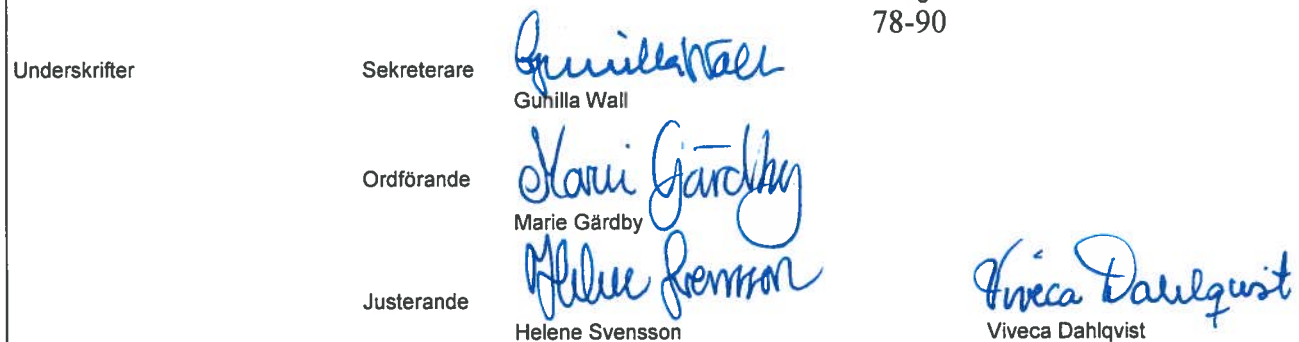 78-90
Underskrifter Sekreterare Gunilla Wall
Gunilla Wall
Ordförande Marie Gärdby
Marie Gärdby
Justerande Helene Svensson Viveca Dahlqvist
Helene Svensson Viveca Dahlqvist